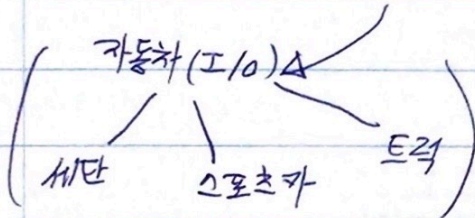 자동차(I/O)
세단 스포츠카 트럭